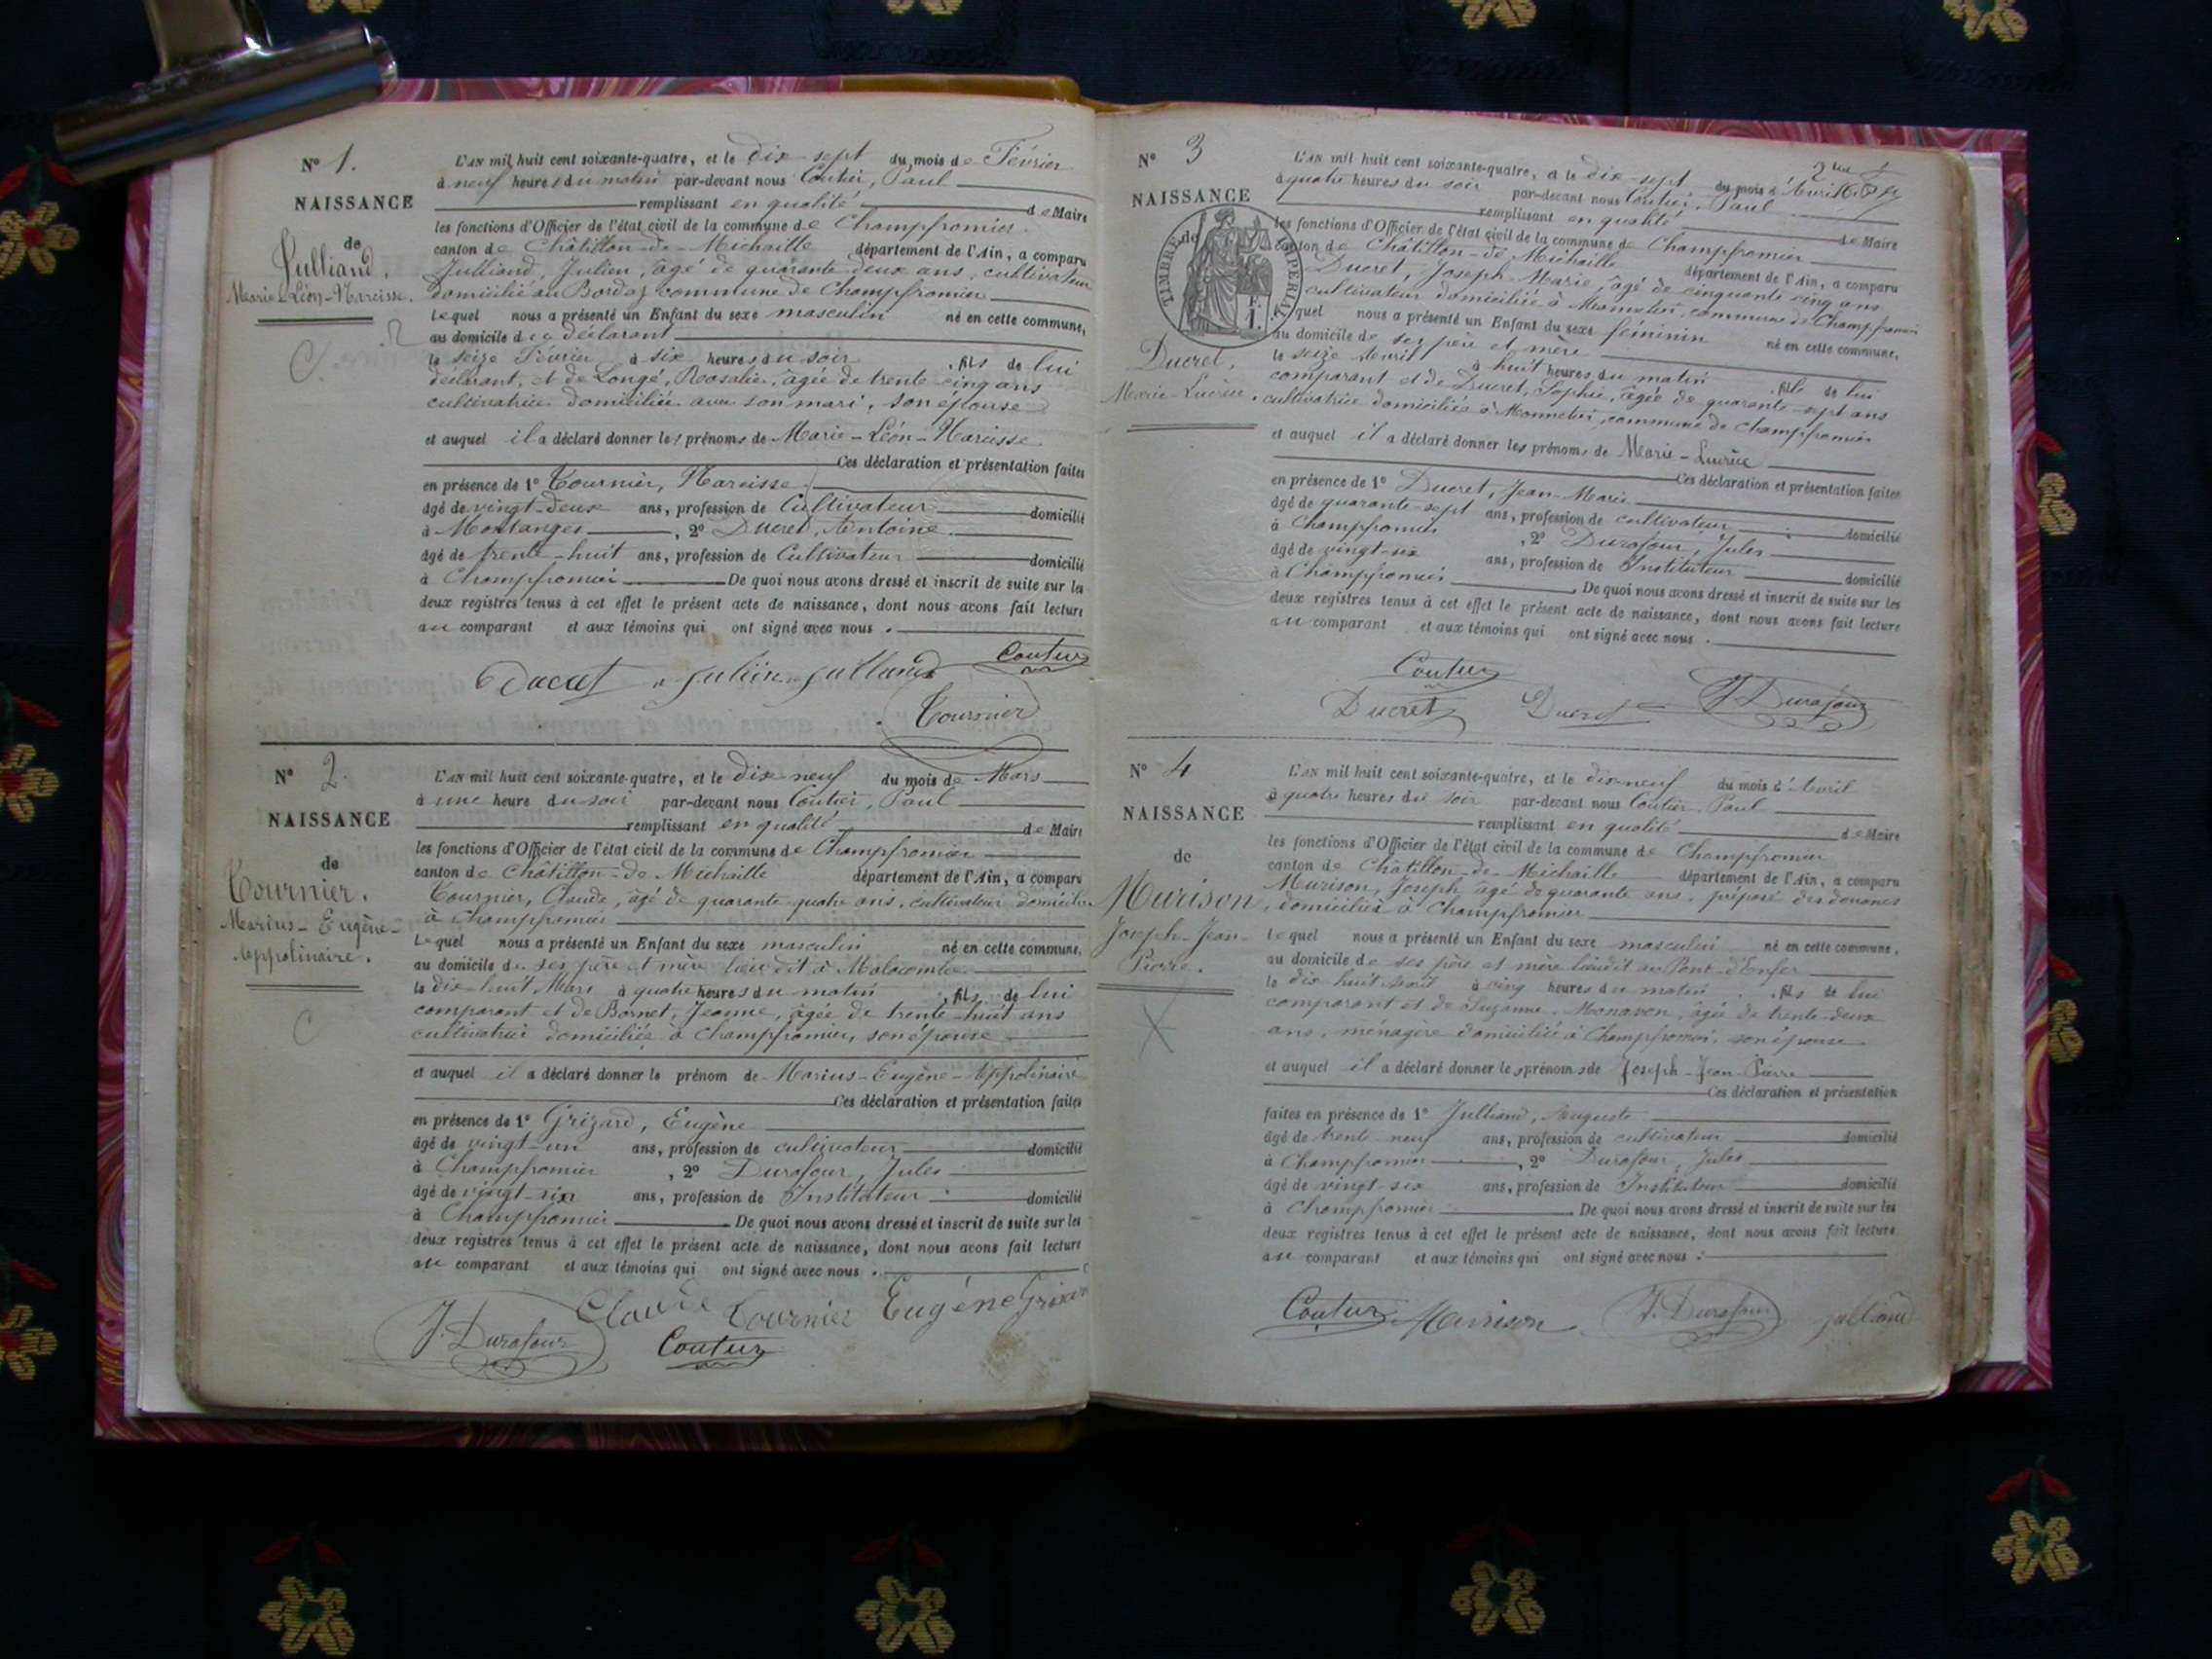 N° 1.
NAISSANCE
de
Julliand,
Marie-Léon-Narcisse.
L'AN mil huit cent soixante-quatre, et le dix-sept du mois de Février
à neuf heures du matin par-devant nous Coutier, Paul
remplissant en qualité de Maire
les fonctions d'Officier de l'état civil de la commune de Champfromier
canton de Châtillon-de-Michaille département de l'Ain, a comparu
Julliand, Julien, âgé de quarante deux ans, cultivateur
domicilié au Bordaz commune de Champfromier
lequel nous a présenté un Enfant du sexe masculin né en cette commune,
au domicile de déclarant
le seize Février à six heures du soir, fils de lui
déclarant, et de Longé, Rosalie, âgée de trente cinq ans
cultivatrice domiciliée avec son mari, son épouse
et auquel il a déclaré donner les prénoms de Marie-Léon-Narcisse
Ces déclaration et présentation faites
en présence de 1° Tournier, Narcisse
âgé de vingt-deux ans, profession de Cultivateur domicilié
à Montanges, 2° Ducret, Antoine
âgé de trente-huit ans, profession de Cultivateur domicilié
à Champfromier De quoi nous avons dressé et inscrit de suite sur les
deux registres tenus à cet effet le présent acte de naissance, dont nous avons fait lecture
au comparant et aux témoins qui ont signé avec nous.
Ducret Julien Julliand Coutier
Tournier
N° 2.
NAISSANCE
de
Tournier.
Marius-Eugène-
Appolinaire.
C
L'AN mil huit cent soixante-quatre, et le dix neuf du mois de Mars
à une heure du soir par-devant nous Coutier, Paul
remplissant en qualité de Maire
les fonctions d'Officier de l'état civil de la commune de Champfromier
canton de Châtillon-de-Michaille département de l'Ain, a comparu
Tournier, Claude, âgé de quarante quatre ans, cultivateur domicilié
à Champfromier
lequel nous a présenté un Enfant du sexe masculin né en cette commune,
au domicile de ses père et mère lieu dit à Malacombe
le dix-huit Mars à quatre heures du matin, fils de lui
comparant et de Bornet, Jeanne, âgée de trente-huit ans
cultivatrice domiciliée à Champfromier, son épouse
et auquel il a déclaré donner le prénom de Marius-Eugène-Appolinaire
Ces déclaration et présentation faites
en présence de 1° Grizard, Eugène
âgé de vingt-un ans, profession de cultivateur domicilié
à Champfromier, 2° Durafour, Jules
âgé de vingt-six ans, profession de Instituteur domicilié
à Champfromier De quoi nous avons dressé et inscrit de suite sur les
deux registres tenus à cet effet le présent acte de naissance, dont nous avons fait lecture
au comparant et aux témoins qui ont signé avec nous.
J. Durafour Claude Tournier Eugène Grizard
Coutier
N° 3
NAISSANCE
de
TIMBRE IMPERIAL
F.
1.
Ducret,
Marie-Lucrèce.
L'AN mil huit cent soixante-quatre, et le dix-sept du mois d'Avril
à quatre heures du soir par-devant nous Coutier, Paul
remplissant en qualité de Maire
les fonctions d'Officier de l'état civil de la commune de Champfromier
canton de Châtillon-de-Michaille département de l'Ain, a comparu
Ducret, Joseph-Marie, âgé de cinquante cinq ans
cultivateur domicilié à Monnetier, commune de Champfromier
lequel nous a présenté un Enfant du sexe féminin né en cette commune,
au domicile de ses père et mère
le seize Avril à huit heures du matin, fille de lui
comparant et de Ducret, Sophie, âgée de quarante-sept ans
cultivatrice domiciliée à Monnetier, commune de Champfromier
et auquel il a déclaré donner les prénoms de Marie-Lucrèce
Ces déclaration et présentation faites
en présence de 1° Ducret, Jean-Marie
âgé de quarante-sept ans, profession de cultivateur domicilié
à Champfromier, 2° Durafour, Jules
âgé de vingt-six ans, profession de Instituteur domicilié
à Champfromier De quoi nous avons dressé et inscrit de suite sur les
deux registres tenus à cet effet le présent acte de naissance, dont nous avons fait lecture
au comparant et aux témoins qui ont signé avec nous.
Coutier
Ducret Ducret J. Durafour
N° 4
NAISSANCE
de
Murison
Joseph-Jean-
Pierre.
X
L'AN mil huit cent soixante-quatre, et le dix-neuf du mois d'Avril
à quatre heures du soir par-devant nous Coutier, Paul
remplissant en qualité de Maire
les fonctions d'Officier de l'état civil de la commune de Champfromier
canton de Châtillon-de-Michaille département de l'Ain, a comparu
Murison, Joseph âgé de quarante ans, préposé des douanes
domicilié à Champfromier
lequel nous a présenté un Enfant du sexe masculin né en cette commune,
au domicile de ses père et mère lieudit au Pont-d'Enfer
le dix huit Avril à cinq heures du matin, fils de lui
comparant et de Suzanne Monavon, âgée de trente-deux
ans, ménagère domiciliée à Champfromier, son épouse
et auquel il a déclaré donner les prénoms de Joseph-Jean-Pierre
Ces déclaration et présentation
faites en présence de 1° Julliand, Auguste
âgé de trente neuf ans, profession de cultivateur domicilié
à Champfromier, 2° Durafour, Jules
âgé de vingt-six ans, profession de Instituteur domicilié
à Champfromier De quoi nous avons dressé et inscrit de suite sur les
deux registres tenus à cet effet le présent acte de naissance, dont nous avons fait lecture
au comparant et aux témoins qui ont signé avec nous.
Coutier Murison J. Durafour Julliand